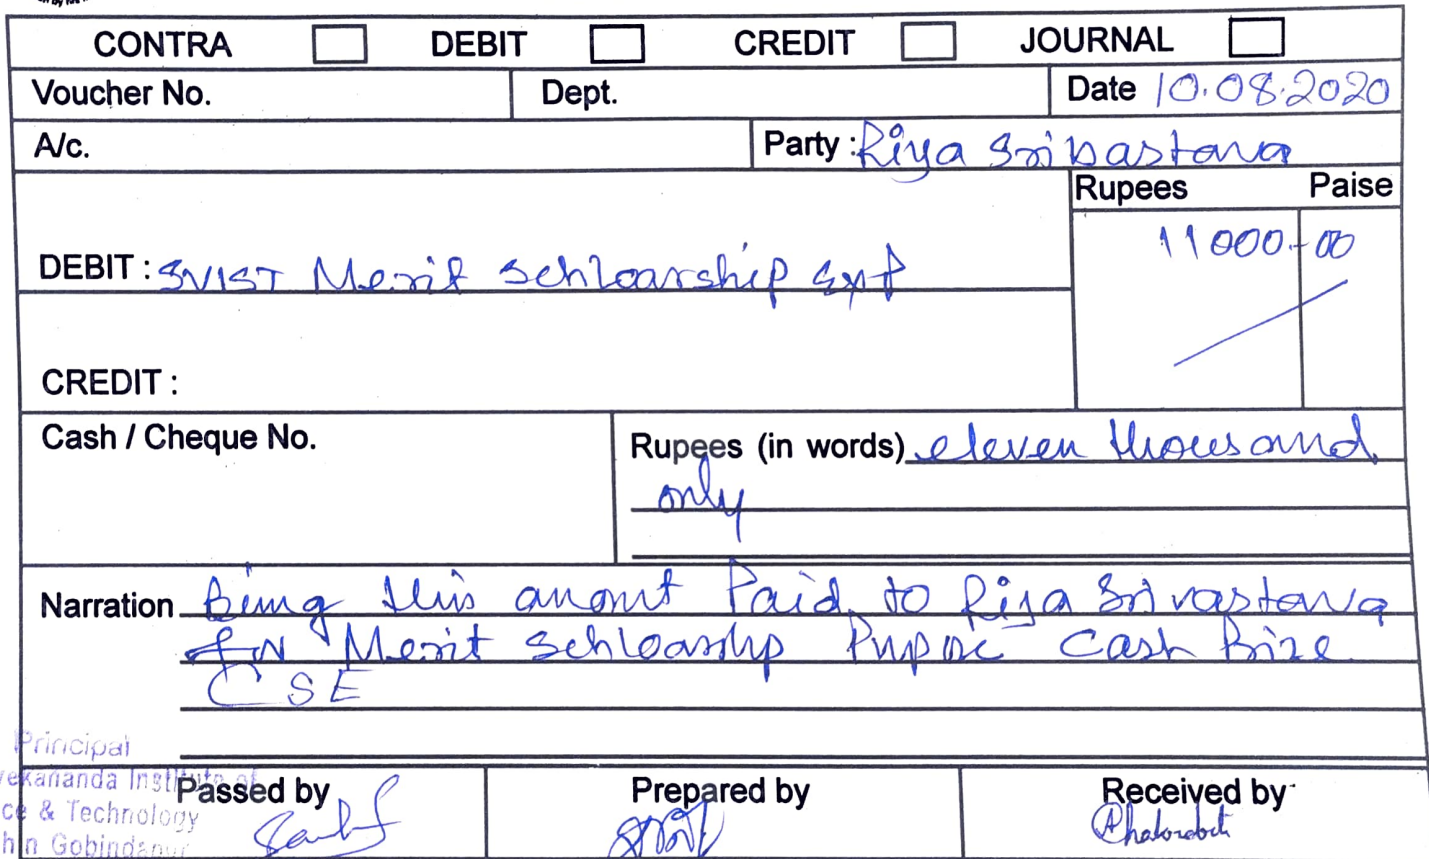 CONTRA DEBIT CREDIT JOURNAL
Voucher No. Dept. Date 10.08.2020
A/c. Party : Riya Sribastava
Rupees Paise
11000-00
DEBIT : SVIST Merit Schloarship Exp
CREDIT :
Cash / Cheque No. Rupees (in words) eleven thousand
only
Narration Being this amont Paid to Riya Srivastava
for Merit Schloarship Prupose Cash Prize
CSE
Principal
vekananda Institute of
ce & Technology
hin Gobindapur
Passed by Prepared by Received by